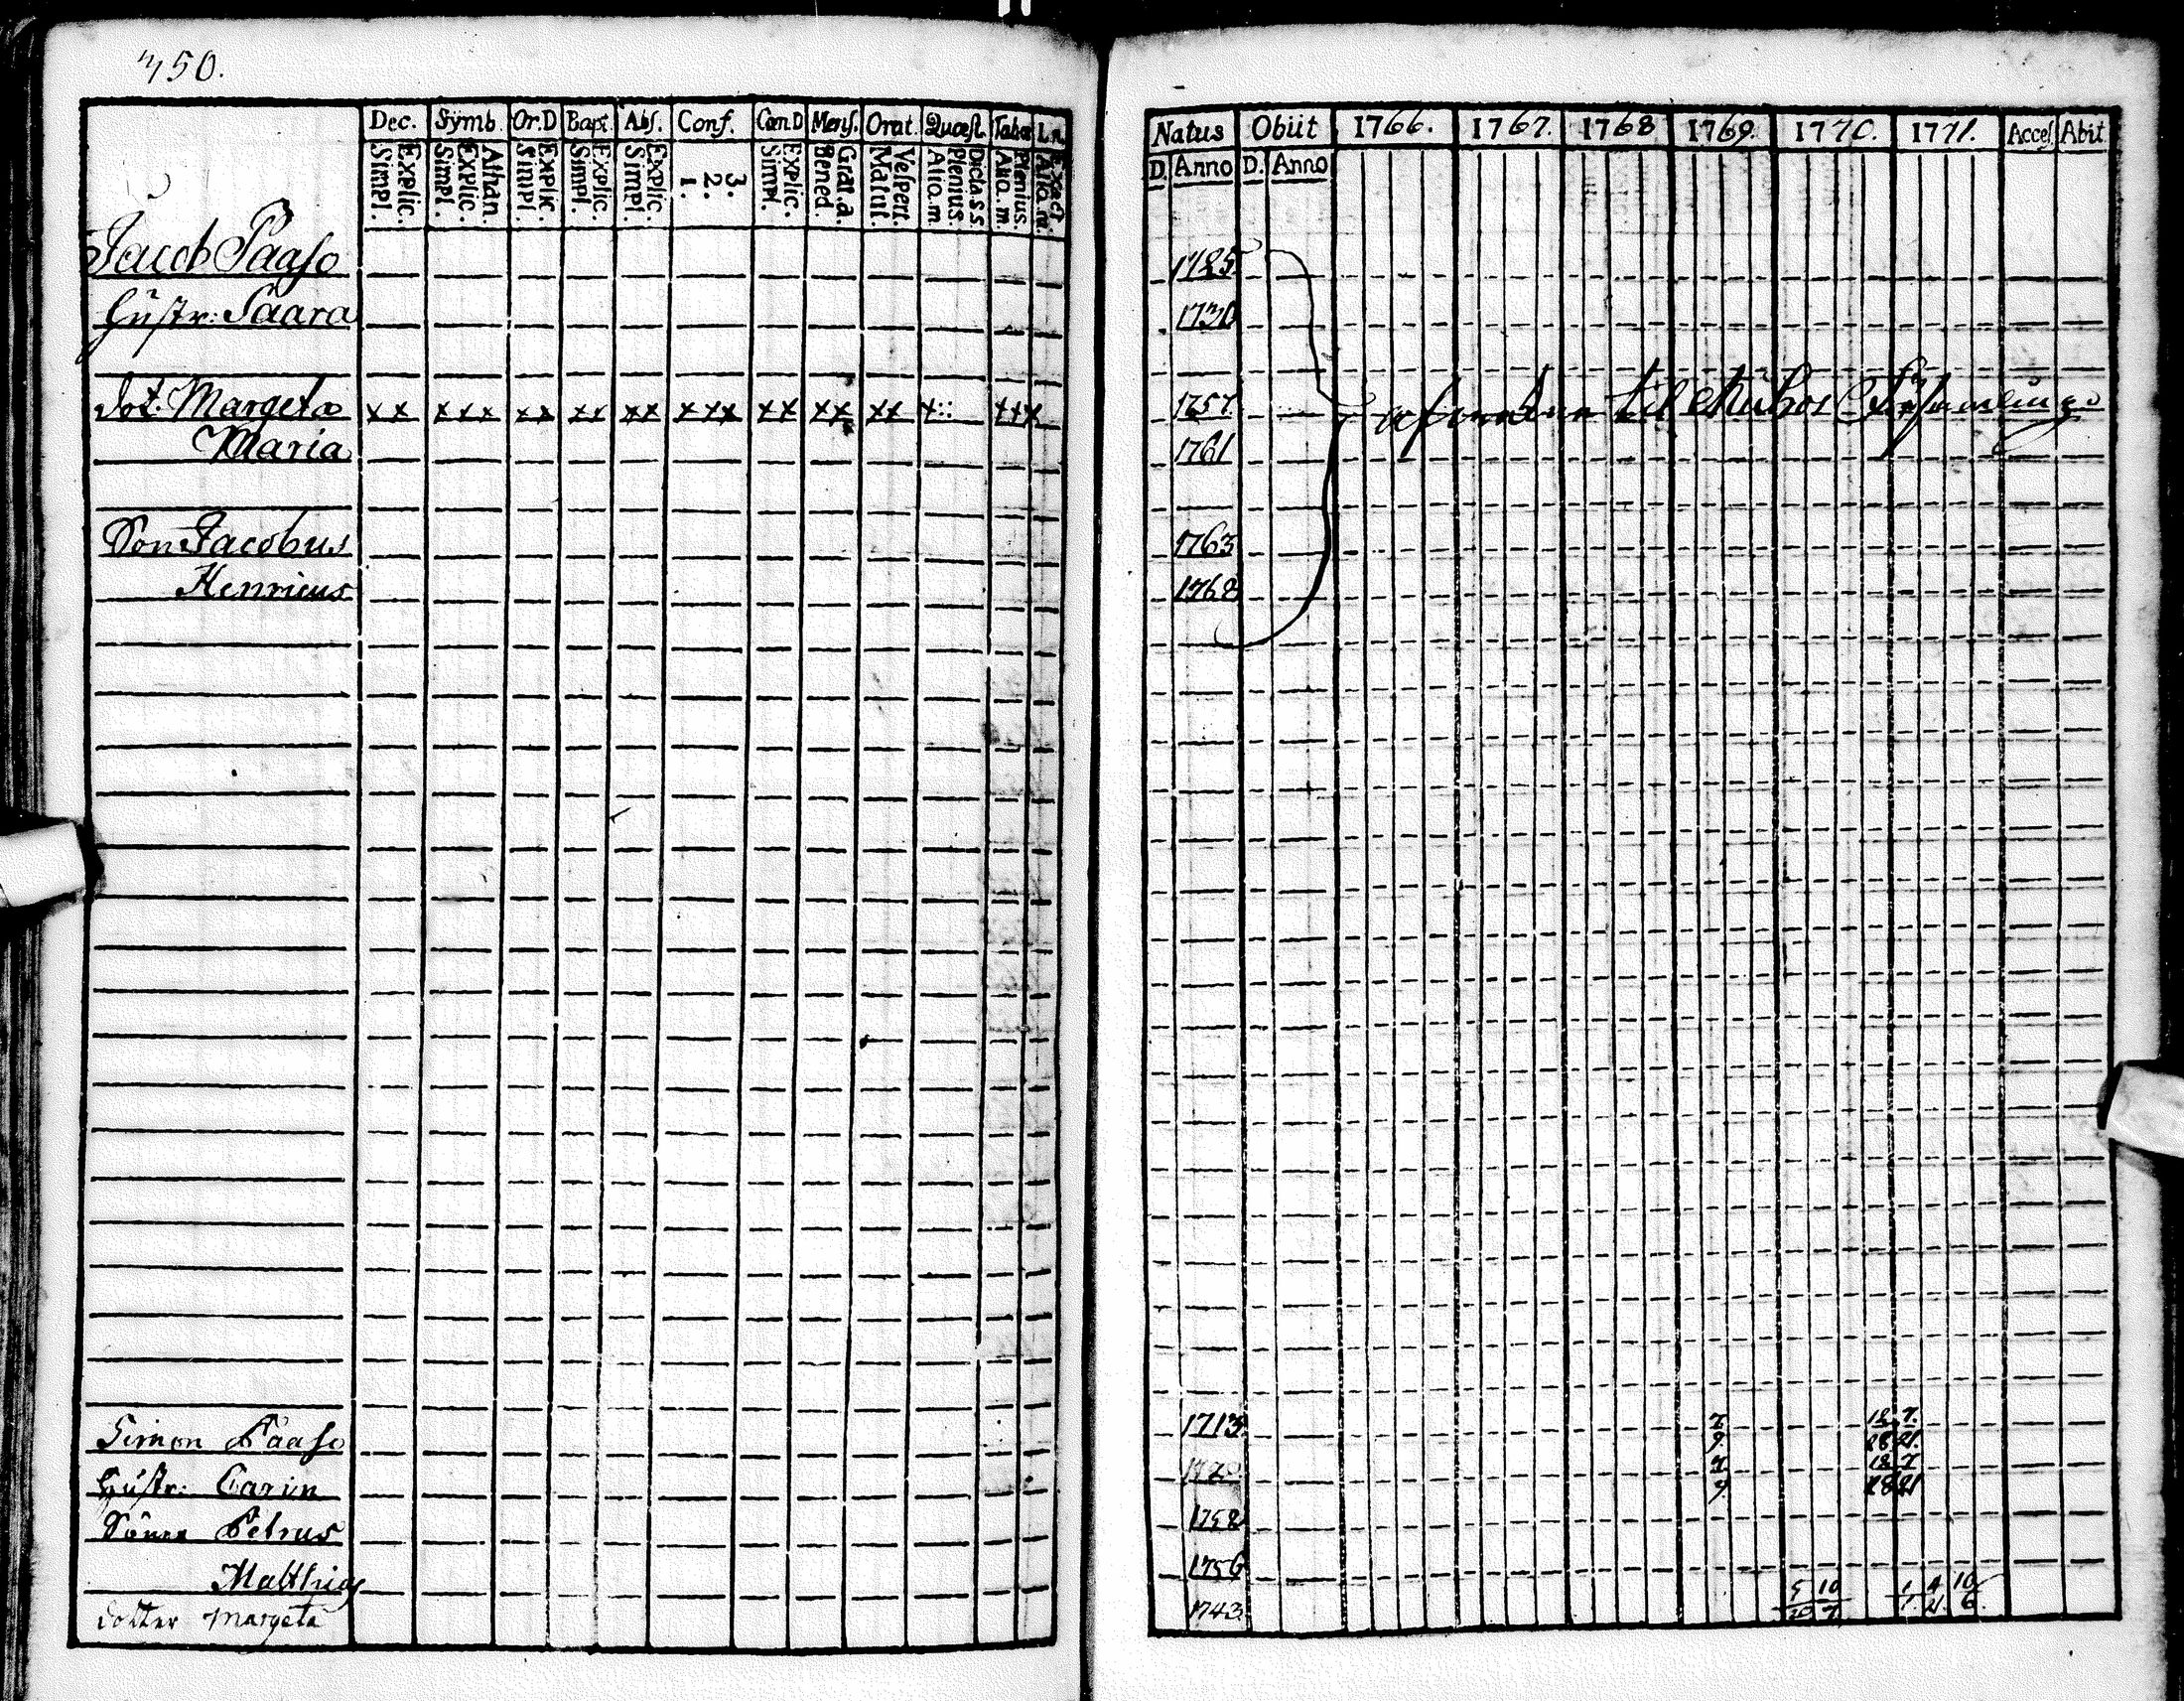 350.
Dec. Symb. Or.D Bapt. Abs. Conf. Cœn.D Mens. Orat. Quæst. Tabœ L.n.
Simpl. Explic. Simpl. Explic. Athan. Simpl. Explic. Simpl. Explic. Simpl. Explic. 1. 2. 3. Simpl. Explic. Bened. Grat.a. Matut. Vespert. Aliq.m Plenius. Dicta s s. Aliq.m. Plenius. Aliq.m. Exact.
Natus Obiit 1766. 1767. 1768 1769. 1770. 1771. Acces. Abit
D. Anno D. Anno
Jacob Paaso 1725
Hustr: Saara 1730
dot. Margeta x x x x x x x x x x x x x x x x x x x x x x::: x x x 1757 til Muhos
Maria 1761
Son Jacobus 1763
Henricus 1768
Simon Paaso 1713 7 9. 18 7. 28 21.
Hustr: Carin 7 9. 18 7 28 21
Söner Petrus
Matthias 1756
dotter Margeta 1743 5 10 1 4 10 20 7 1 21. 6.